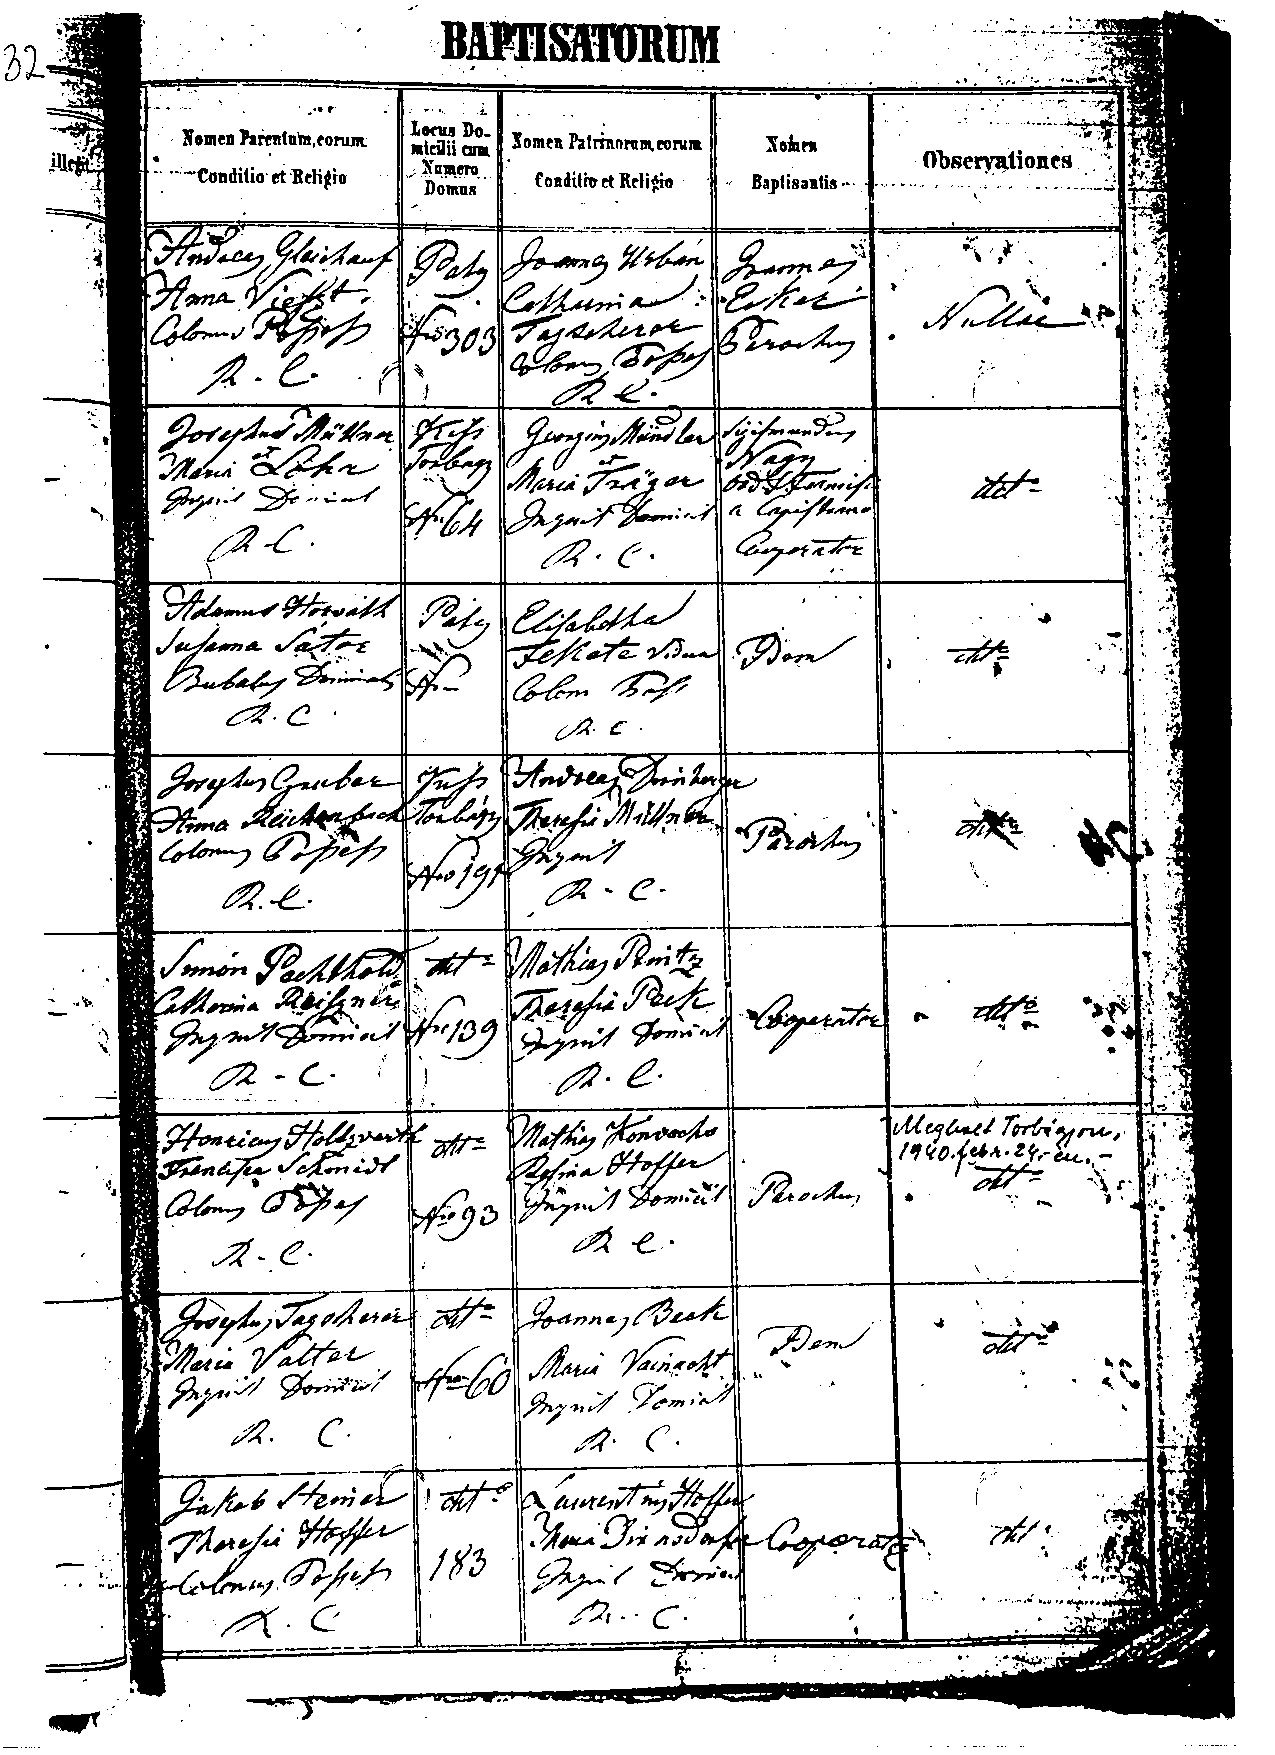 32
BAPTISATORUM
Nomen Parentum, eorum
Conditio et Religio
Locus Do-
micilii cum
Numero
Domus
Nomen Patrinorum, eorum
Conditio et Religio
Nomen
Baptisantis
Observationes
Andreas Gleichauf
Anna
Colonus
R. C.
Paty
Nro 303
Joannes Urbán
Catharina
Tagscherer
Colonus
R. C.
Joannes
Ecker
Parochus
Nullae
Josephus Müllner
et
Maria Lohr
Inquil Domicil
R. C.
Kiss
Torbágy
Nro 64
Georgius Mándler
et
Maria Träger
Inquil Domicil
R. C.
Sigismundus
Nagy
a Capistrano
Cooperator
dtto
Adamus Horváth
Susanna Sátor
Bubulcus Dominalis
R. C.
Paty
Nro -
Elisabetha
Fekete Vidua
R. C.
Idem
dtto
Josephus Gruber
Anna Reichenbach
Colonus
R. C.
Kiss
Torbágy
Nro 191
Andreas
Theresia Müllner
Inquil
R. C.
Parochus
dtto
Simon Pechthold
Catharina
Inquil Domicil
R. C.
dtto
Nro 139
Mathias
Theresia Peck
Inquil Domicil
R. C.
Cooperator
dtto
Henricus Holdzvarth
Francisca Schmidt
Colonus
R. C.
dtto
Nro 93
Mathias
Rosina Hoffer
Inquil Domicil
R. C.
Parochus
Meghalt Torbágyon,
1940. febr. 24-én. -
dtto
Josephus Tagscherer
Maria Valter
Inquil Domicil
R. C.
dtto
Nro 60
Joannes Beck
Maria Vainacht
Inquil Domicil
R. C.
Idem
dtto
Jakab Steiner
Theresia Hoffer
Colonus
R. C.
dtto
183
Laurentius Hoffer
Maria
Inquil Domicil
R. C.
Cooperator
dtto